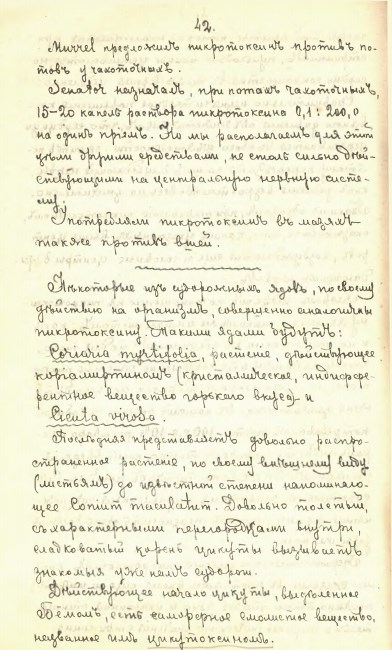 42.
Murrel предложилъ пикротоксинъ противъ по-
товъ у чахоточныхъ.
Senator назначалъ, при потахъ чахоточныхъ,
15-20 капель раствора пикротоксина 0,1 : 200,0
на одинъ прiемъ. Но мы располагаемъ для этой
цѣли другими средствами, не столь сильно дѣй-
ствующими на центральную нервную систе-
му.
Употребляли пикротоксинъ въ мазяхъ
также противъ вшей.
Нѣкоторые изъ судорожныхъ ядовъ, по своему
дѣйствiю на организмъ, совершенно аналогичны
пикротоксину. Такими ядами будутъ:
Coriaria myrtifolia, растенiе, дѣйствующее
корiамиртиномъ (кристаллическое, индиффе-
рентное вещество горькаго вкуса) и
Cicuta virosa.
Послѣдняя представляетъ довольно распро-
страненное растенiе, по своему внѣшнему виду
(листьямъ) до извѣстной степени напоминаю-
щее Conium maculatum. Довольно толстый,
съ характерными перегородками внутри,
сладковатый корень цикуты вызываетъ
знакомыя уже намъ судороги.
Дѣйствующее начало цикуты, выдѣленное
Бёмомъ, есть аморфное смолистое вещество,
названное имъ цикутоксиномъ.